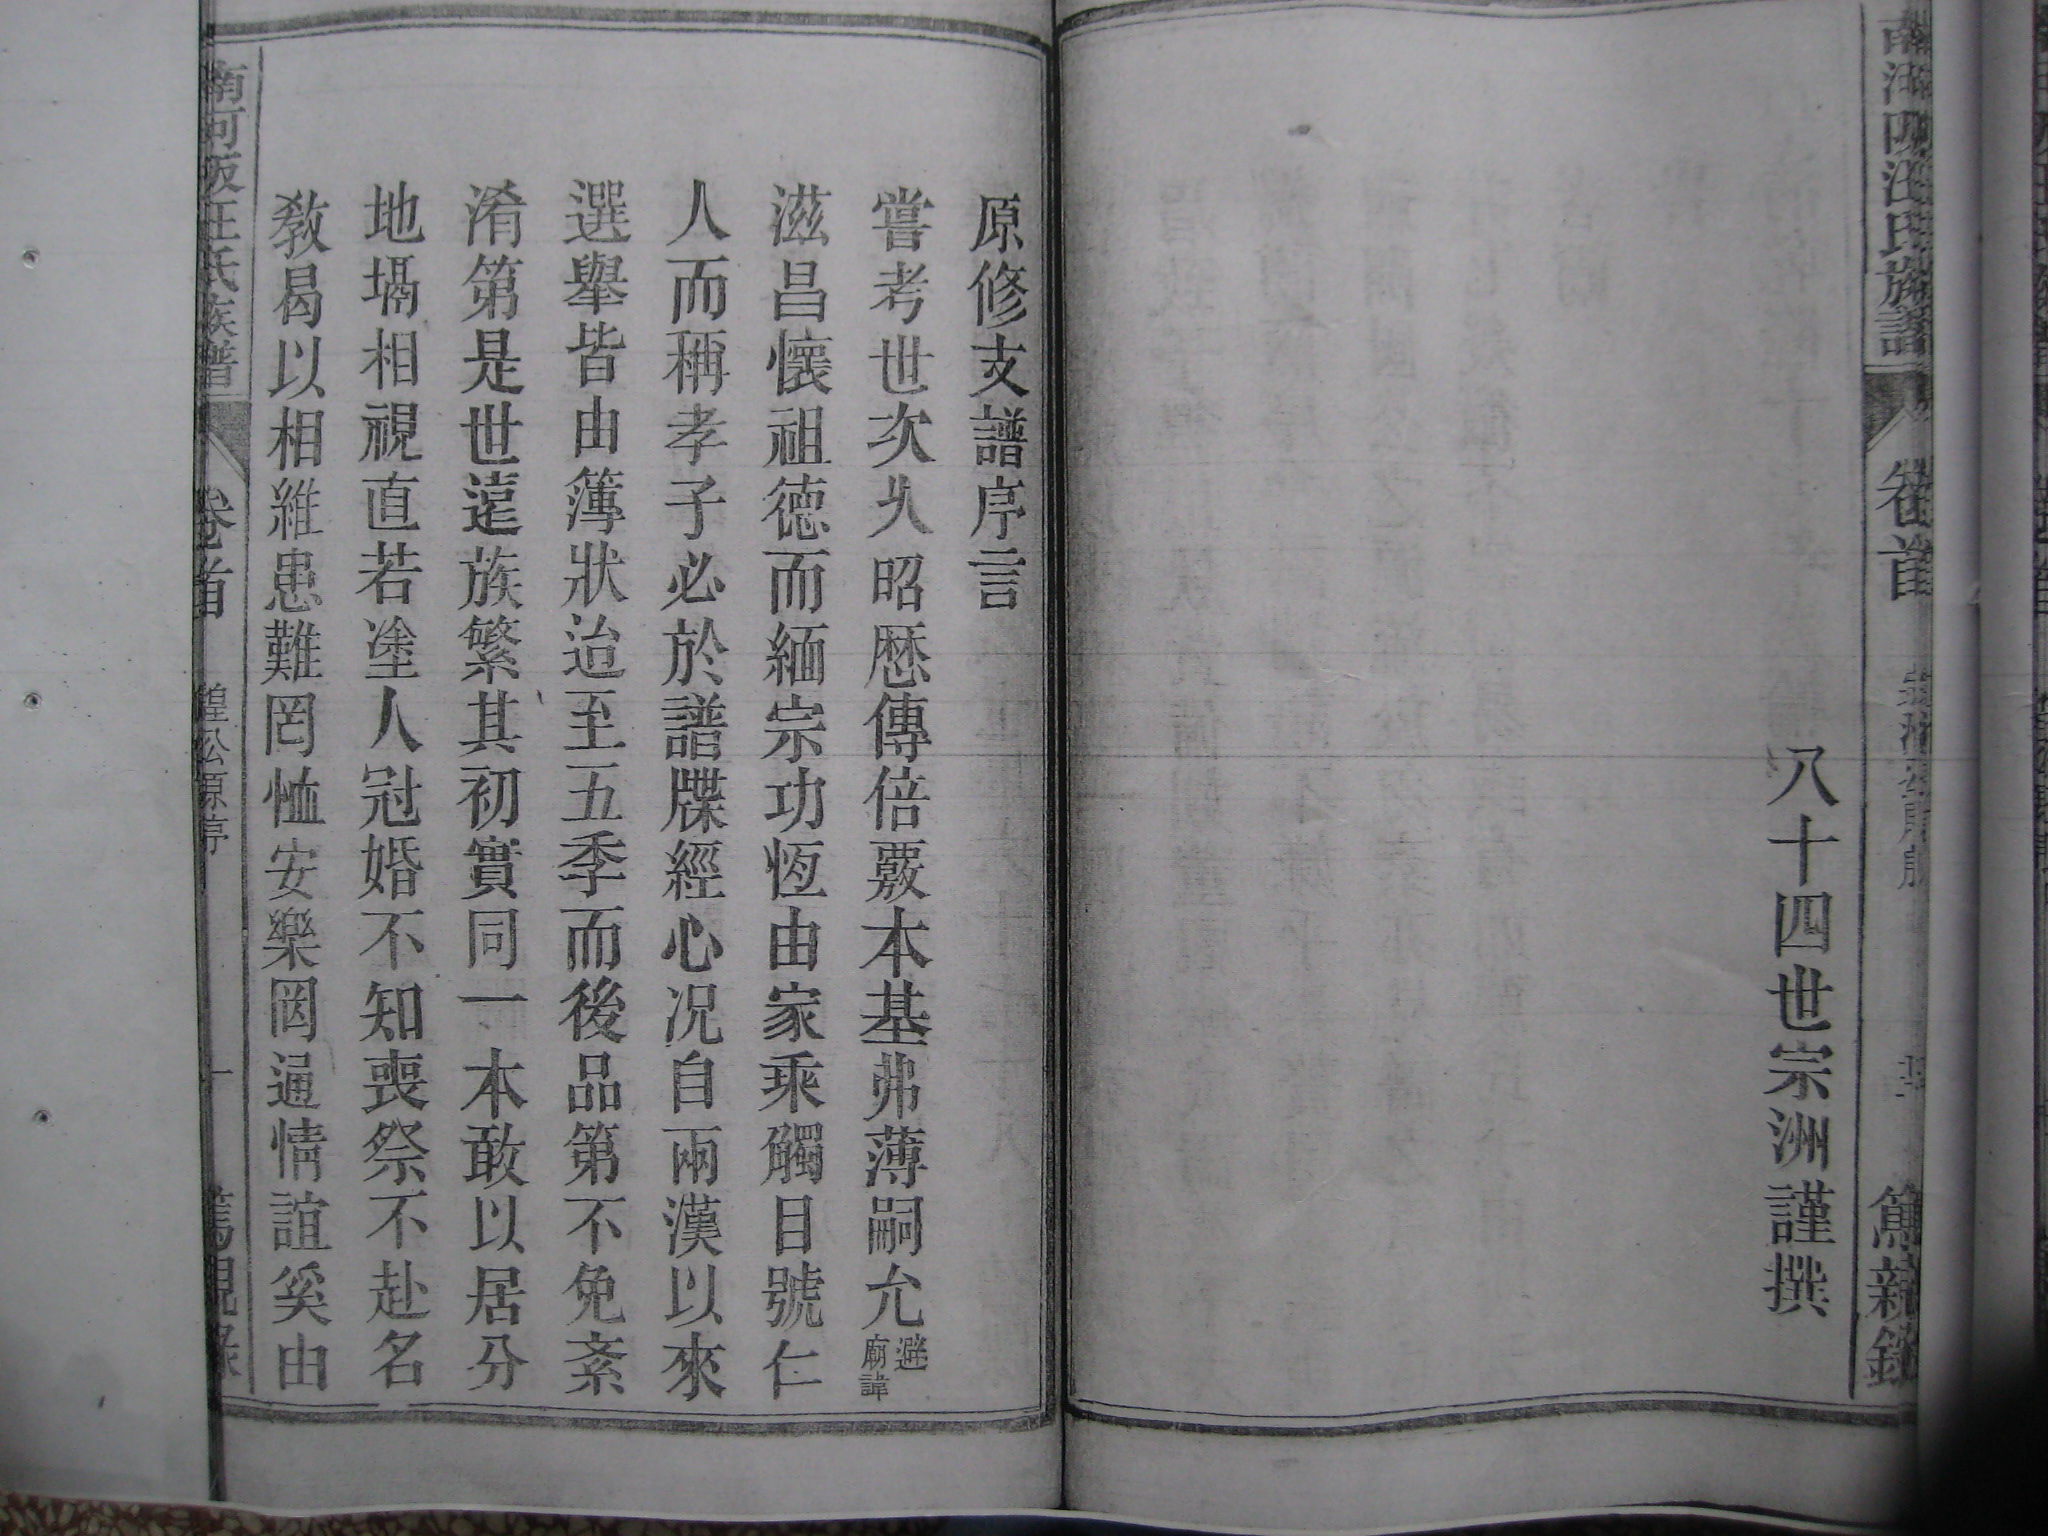 南河阪汪氏族譜 卷首 篤親錄
八十四世宗洲謹撰
原修支譜序言
嘗考世次久昭歷傳倍覈本基弗薄嗣允避廟諱
滋昌懷祖德而緬宗功恆由家乘觸目號仁
人而稱孝子必於譜牒經心况自兩漢以來
選舉皆由簿狀迨至五季而後品第不免紊
淆第是世遠族繁其初實同一本敢以居分
地塥相視直若塗人冠婚不知喪祭不赴名
教曷以相維患難罔恤安樂罔通情誼奚由
南河阪汪氏族譜 卷首 煌公原序 十 篤親錄